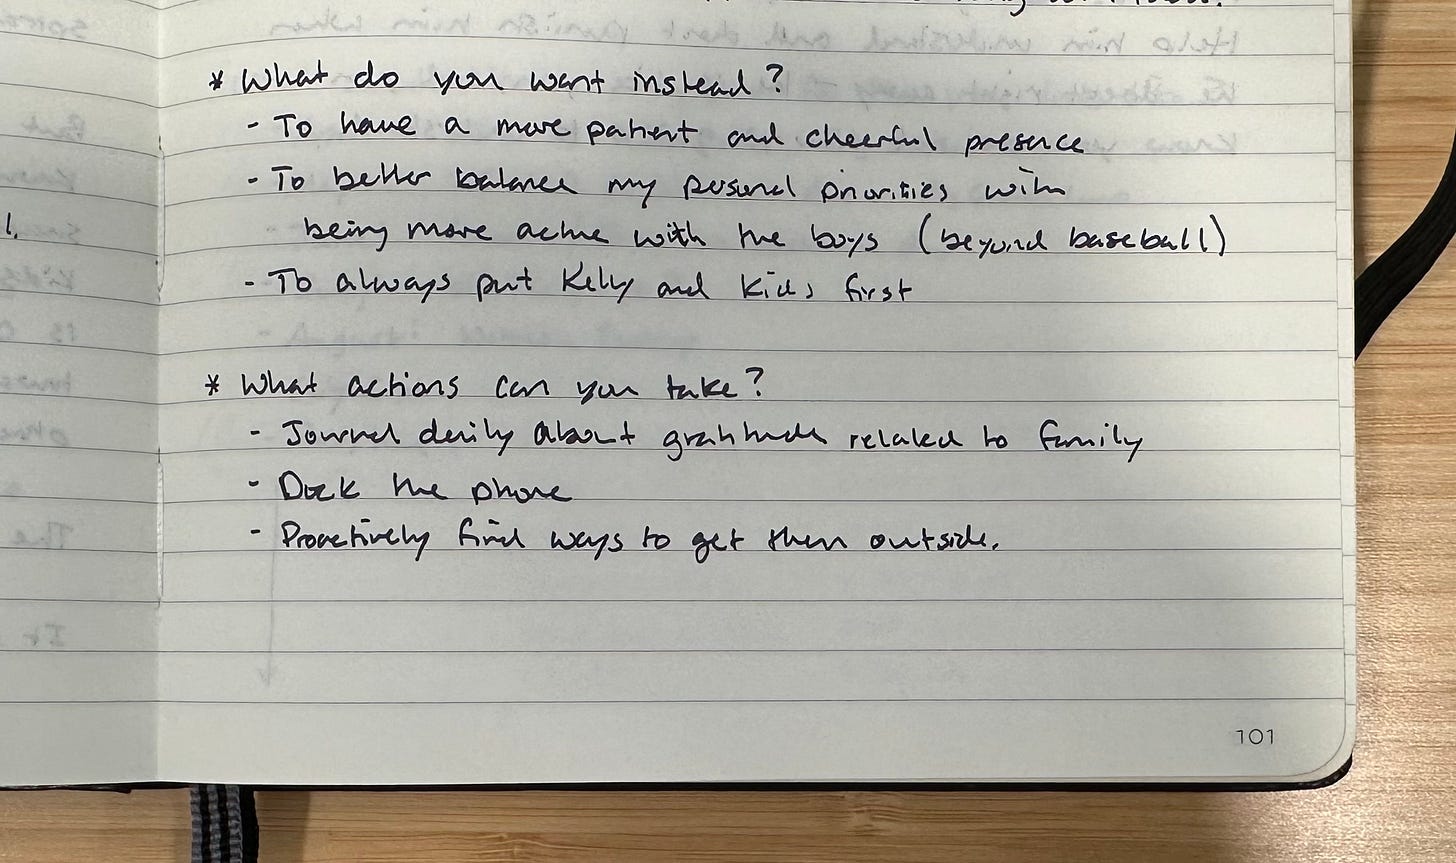 * What do you want instead?
- To have a more patient and cheerful presence
- To better balance my personal priorities with
being more active with the boys (beyond baseball)
- To always put Kelly and kids first
* What actions can you take?
- Journal daily about gratitude related to family
- Dock the phone
- Proactively find ways to get them outside.
101